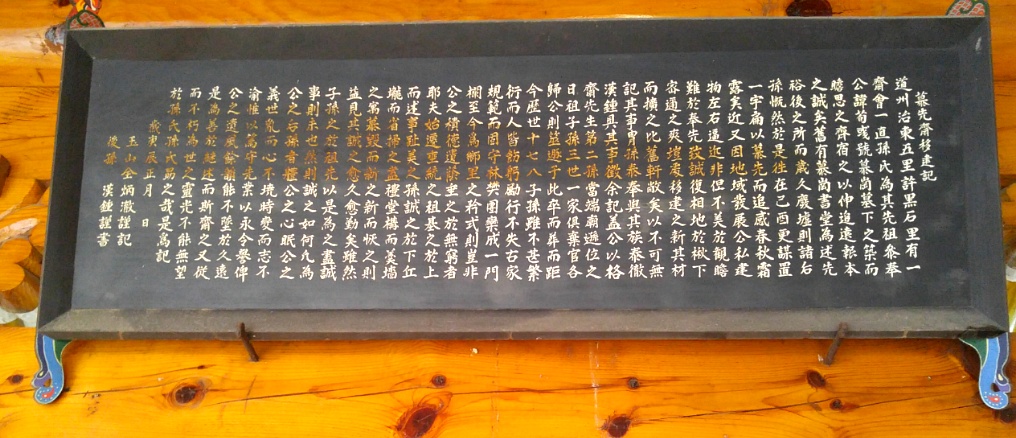 慕先齋移建記
道州治東五里許黑石里有一
齋會一直孫氏為其先祖參奉
公諱荀
瞻思之齋宿之以伸追遠報本
之誠矣舊有慕齋書堂為述先
裕後之所而歲久廢墟則諸右
孫慨然於是往在己酉更謀置
一宇齋以慕先而追感春秋霜
露矣近又因地域發展公私建
物左右逼迮非但不美於觀瞻
難於奉先致誠復相地於楸下
容通之爽塏處移建之新其材
而擴之比舊軒敞矣以不可無
記其事胄孫泰奉與其族泰徹
漢鍾具其事徵余記蓋公以格
齋先生第二孫當端廟遜位之
日祖子孫三世一家俱棄官各
歸公則益遯于此卒而葬而距
今歷世十七八子孫雖不甚繁
衍而人皆飭躬勵行不失古家
規範而固守林樊團欒成一門
楣至今為鄉里之矜式則豈非
公之積德遺蔭垂之於無窮者
耶夫始遷重統之祖基之於上
而述事趾美之孫誠之於下丘
壠而省掃之盡禮堂構而羹墻
之寓慕毀而新之新而恢之則
益見其誠之愈久愈勤矣雖然
子孫之於祖先以是為之盡誠
事則未也然則誠之如何凡為
公之右孫者體公之心服公之
義世亂而心不境時變而志不
渝惟以為守先業以永令譽俾
公之遺風餘韻能不墜於久遠
是為善於繼述而斯齋之又從
而不朽為世之靈光不能無望
於孫氏孫氏勗之哉是為記
歲庚辰正月 日
玉山金炳澈謹記
後孫 漢鍾謹書